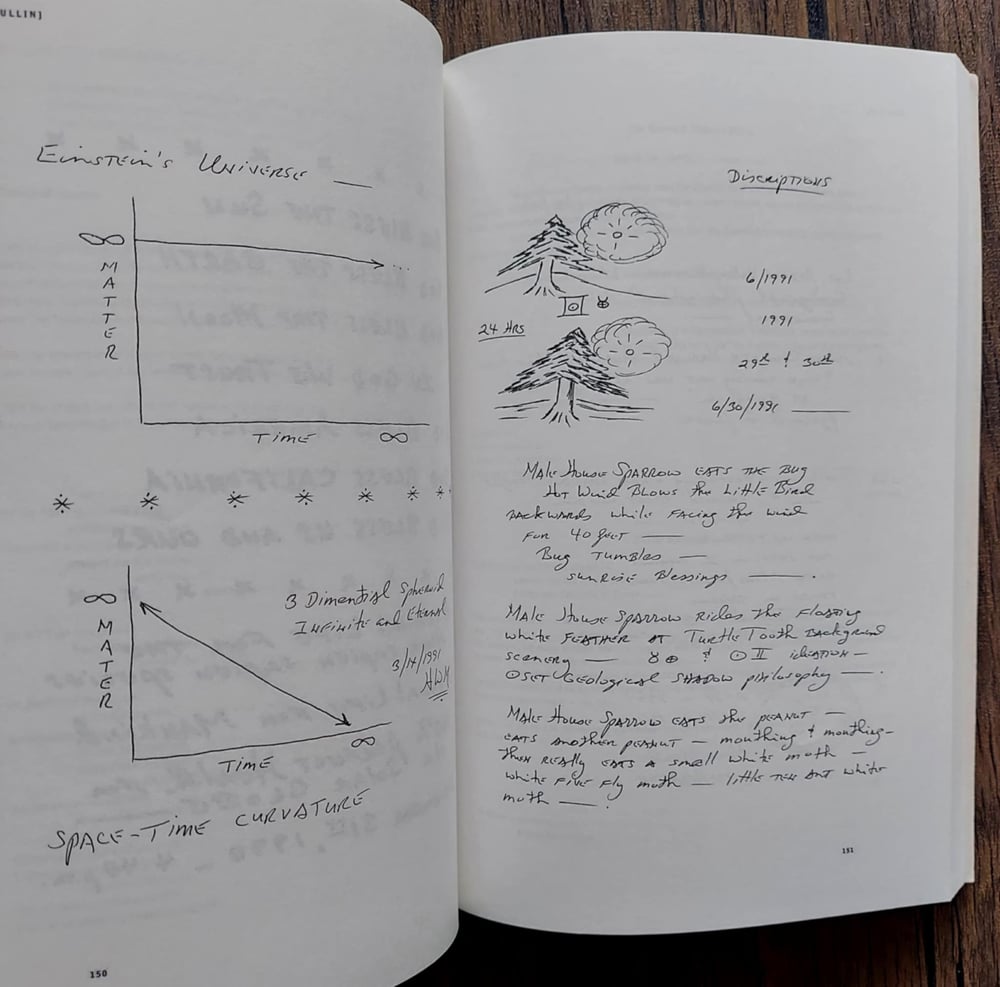 ULLIN]
Einstein's Universe —
∞
MATTER
Time ∞
* * * * * * *
∞
MATTER
3 Dimential Spheroid
Infinite and Eternal
3/14/1991
AWM
Time
∞
Space-Time Curvature
150
Discriptions
6/1991
1991
24 HRS
29th & 30th
6/30/1991 —
Male House Sparrow eats the Bug
Hot Wind Blows the Little Bird
Backwards while facing the wind
for 40 feet —
Bug Tumbles —
sunrise Blessings — .
Male House Sparrow Rides the Floating
white feather at Turtle Tooth Background
scenery — ♉ ⊕ & ⊙ II ideation —
Geological Shadow philosophy — .
Male House Sparrow eats the peanut —
eats another peanut — mouthing & mouthing —
then really eats a small white moth —
white five fly moth — little ten ant white
moth — .
151